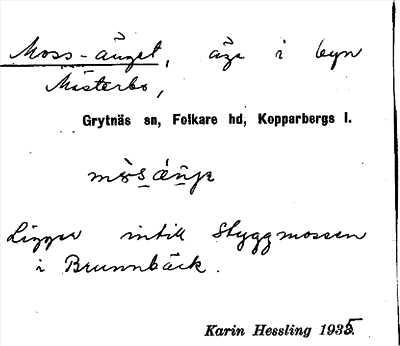 Moss-änget, äga i byn
Mästerbo,
Grytnäs sn, Folkare hd, Kopparbergs l.
Ligger intill Styggmossen
i Brunnbäck.
Karin Hessling 1935.